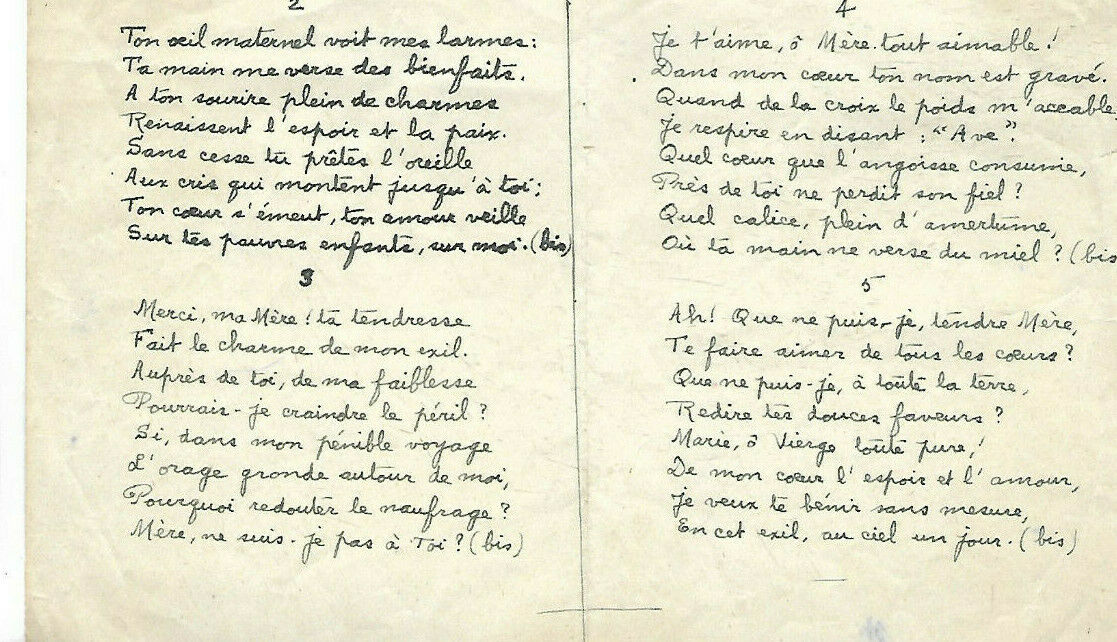 2
Ton œil maternel voit mes larmes :
Ta main me verse des bienfaits.
A ton sourire plein de charmes
Renaissent l'espoir et la paix.
Sans cesse tu prêtes l'oreille
Aux cris qui montent jusqu'à toi :
Ton cœur s'émeut, ton amour veille
Sur tes pauvres enfants, sur moi. (bis)
3
Merci, ma Mère ! ta tendresse
Fait le charme de mon exil.
Auprès de toi, de ma faiblesse
Pourrais-je craindre le péril ?
Si, dans mon pénible voyage
L'orage gronde autour de moi,
Pourquoi redouter le naufrage ?
Mère, ne suis-je pas à Toi ? (bis)
4
Je t'aime, ô Mère tout aimable !
Dans mon cœur ton nom est gravé.
Quand de la croix le poids m'accable
Je respire en disant : "Ave".
Quel cœur que l'angoisse consume,
Près de toi ne perdit son fiel ?
Quel calice, plein d'amertume,
Où ta main ne verse du miel ? (bis
5
Ah ! Que ne puis-je, tendre Mère,
Te faire aimer de tous les cœurs ?
Que ne puis-je, à toute la terre,
Redire tes douces faveurs ?
Marie, ô Vierge toute pure, !
De mon cœur l'espoir et l'amour,
Je veux te bénir sans mesure,
En cet exil, au ciel un jour. (bis)